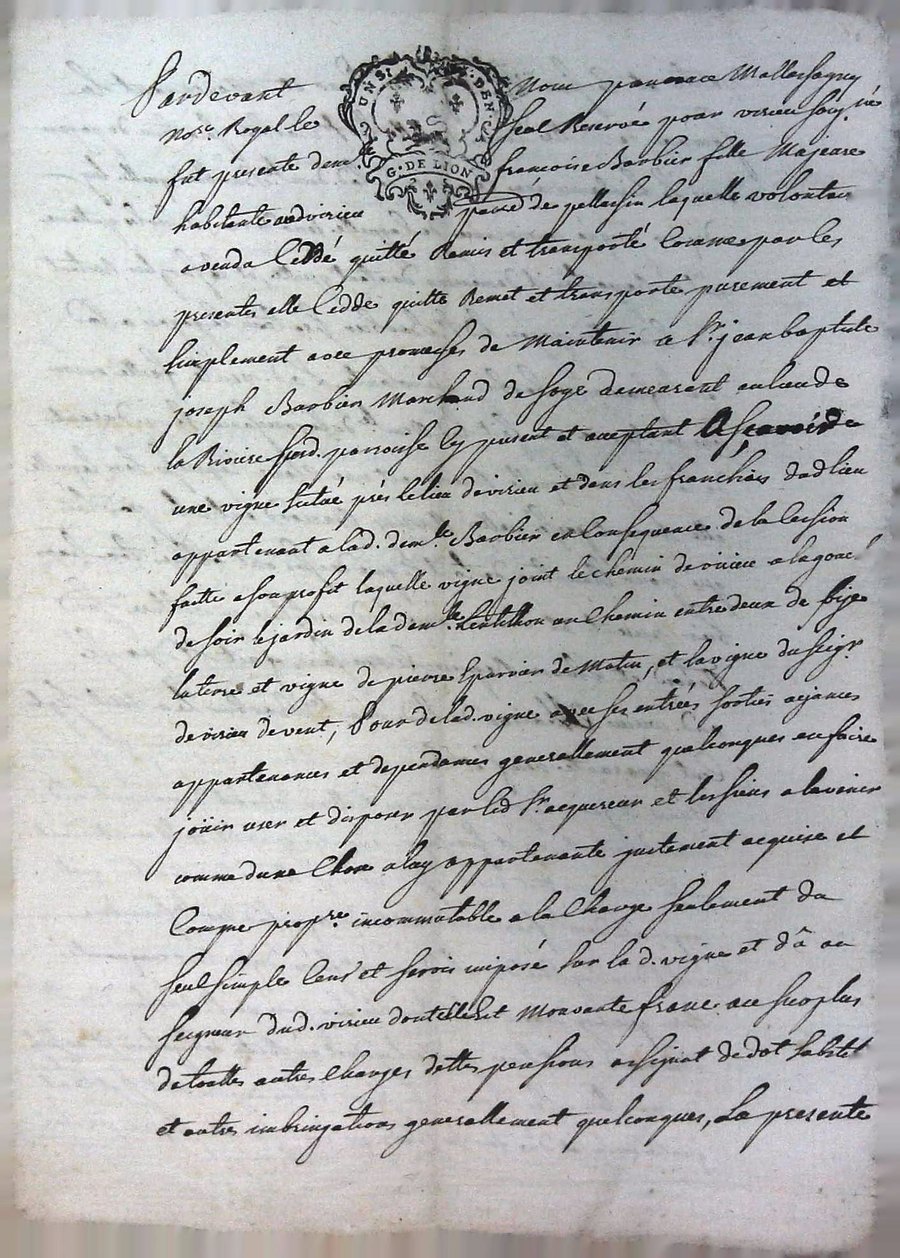 Pardevant Nous pancrace Mallassagny
no.re Royal le seul Reservé pour virieu sousig.né
fut presente dem.lle francoise Barbier fille Majeure
habitante aud virieu parr.e de pellussin laquelle volontai
a venda Ceddé quitté Remis et transporté Comme par les
presentes elle Cedde quitte Remet et transporte purement et
simplement avec promesses de Maintenir a S.r jean baptiste
joseph Barbier Marchand de soye demeurant au lieu de
la Riviere susd. parroisse icy present et acceptant Asçavoir
une vigne situé près le lieu de virieu et dans les franchises dud lieu
appartenant a lad. dem.lle Barbier en Consequence de la Cession
faitte a son profit laquelle vigne joint le chemin de virieu a
de soir le jardin de la dem.lle Lentillon un Chemin entredeux de bize
la terre et vigne de pierre Eparvier de Matin, et la vigne du seig.r
de virieu de vent, Pour de lad. vigne avec ses entrées sorties aizances
appartenances et dependances generallement quelconques en faire
joüir user et disposer par led S.r acquereur et les siens a lavenir
comme dune Chose a luy appartenante justement acquise et
Comme prop.re incommutable a la Charge seulement du
seul simple Cens et servis imposé sur la d. vigne et dû au
seigneur dud. virieu dont elle est Mouvante franc au surplus
de touttes autres Charges dettes pensions assignat de dot
et autres imbringations generallement quelconques, La presente
G. DE LION